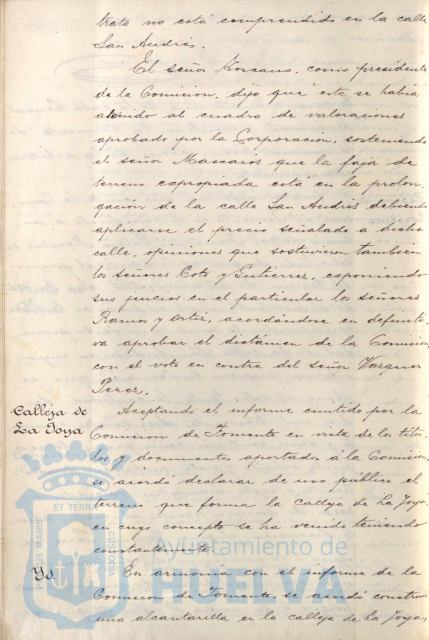 trata no está comprendido en la calle
San Andrés.
El señor Moscano, como presidente
de la Comision, dijo que esta se habia
atenido al cuadro de valoraciones
aprobado por la Corporacion, sosteniendo
el señor Mascarós que la faja de
terreno expropiada está en la prolon-
gación de la calle San Andrés debiendo
aplicarse el precio señalado a dicha
calle, opiniones que sostuvieron tambien
los señores Coto y Gutierrez, exponiendo
sus juicios en el particular los señores
Ramos y Ortiz, acordándose en definiti-
va aprobar el dictámen de la Comision
con el voto en contra del señor Vazquez
Perez.
Calleja de
La Joya
Aceptando el informe emitido por la
Comision de Fomento en vista de los titu-
los y documentos aportados á la Comision,
se acordó declarar de uso público el
terreno que forma la calleja de La Joya,
en cuyo concepto se ha venido teniendo
constantemente.
Yd.
En armonia con el informe de la
Comision de Fomento, se acordó construir
una alcantarilla en la calleja de La Joya,
PORTUS MARIS ET TERRAE CUSTODIA
Ayuntamiento de
HUELVA